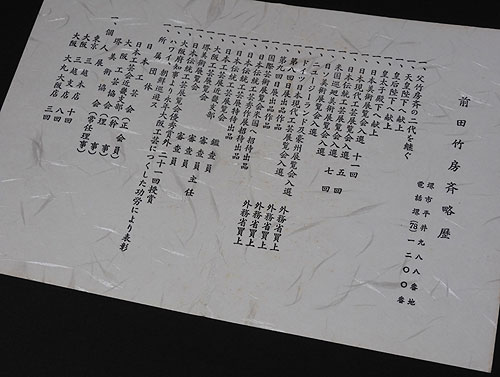 前田竹房斉略歴
堺市平井九八八番地
電話堺(78)一二〇〇番
一、父竹房斉の二代を継ぐ
一、天皇陛下へ献上
一、皇后陛下へ献上
一、皇太子殿下へ献上
一、日本美術展覧会入選 十一回
一、日本現代工芸展覧会入選 五回
一、日本伝統工芸展覧会入選
一、米国巡廻工芸展覧会入選
一、新日本美術展覧会入選 七回
一、ニュージーランド及豪州展覧会入選
一、ドイツ日本現代工芸展覧会入選 外務省買上
一、第八回日展出品作品 外務省買上
一、国際芸術展出品作品 外務省買上
一、日本伝統工芸展覧会米国へ招待出品 外務省買上
一、日本伝統工芸秀作展招待出品
一、日本伝統工芸新作展招待出品
一、大阪工芸展近畿支部 鑑査員
一、堺美術展覧会 審査員
一、大阪工芸展覧会 審査員主任
一、大阪府知事より永年大阪工芸につくした功労により表彰
所属団体
日本工芸会(正会員)
大阪工芸会近畿支部(幹事)
堺工芸協会(理事)
堺美術協会(常任理事)
一、個人展
東京 三越本店
大阪 三越大阪店 十回
大阪 大丸支店 八回 四回